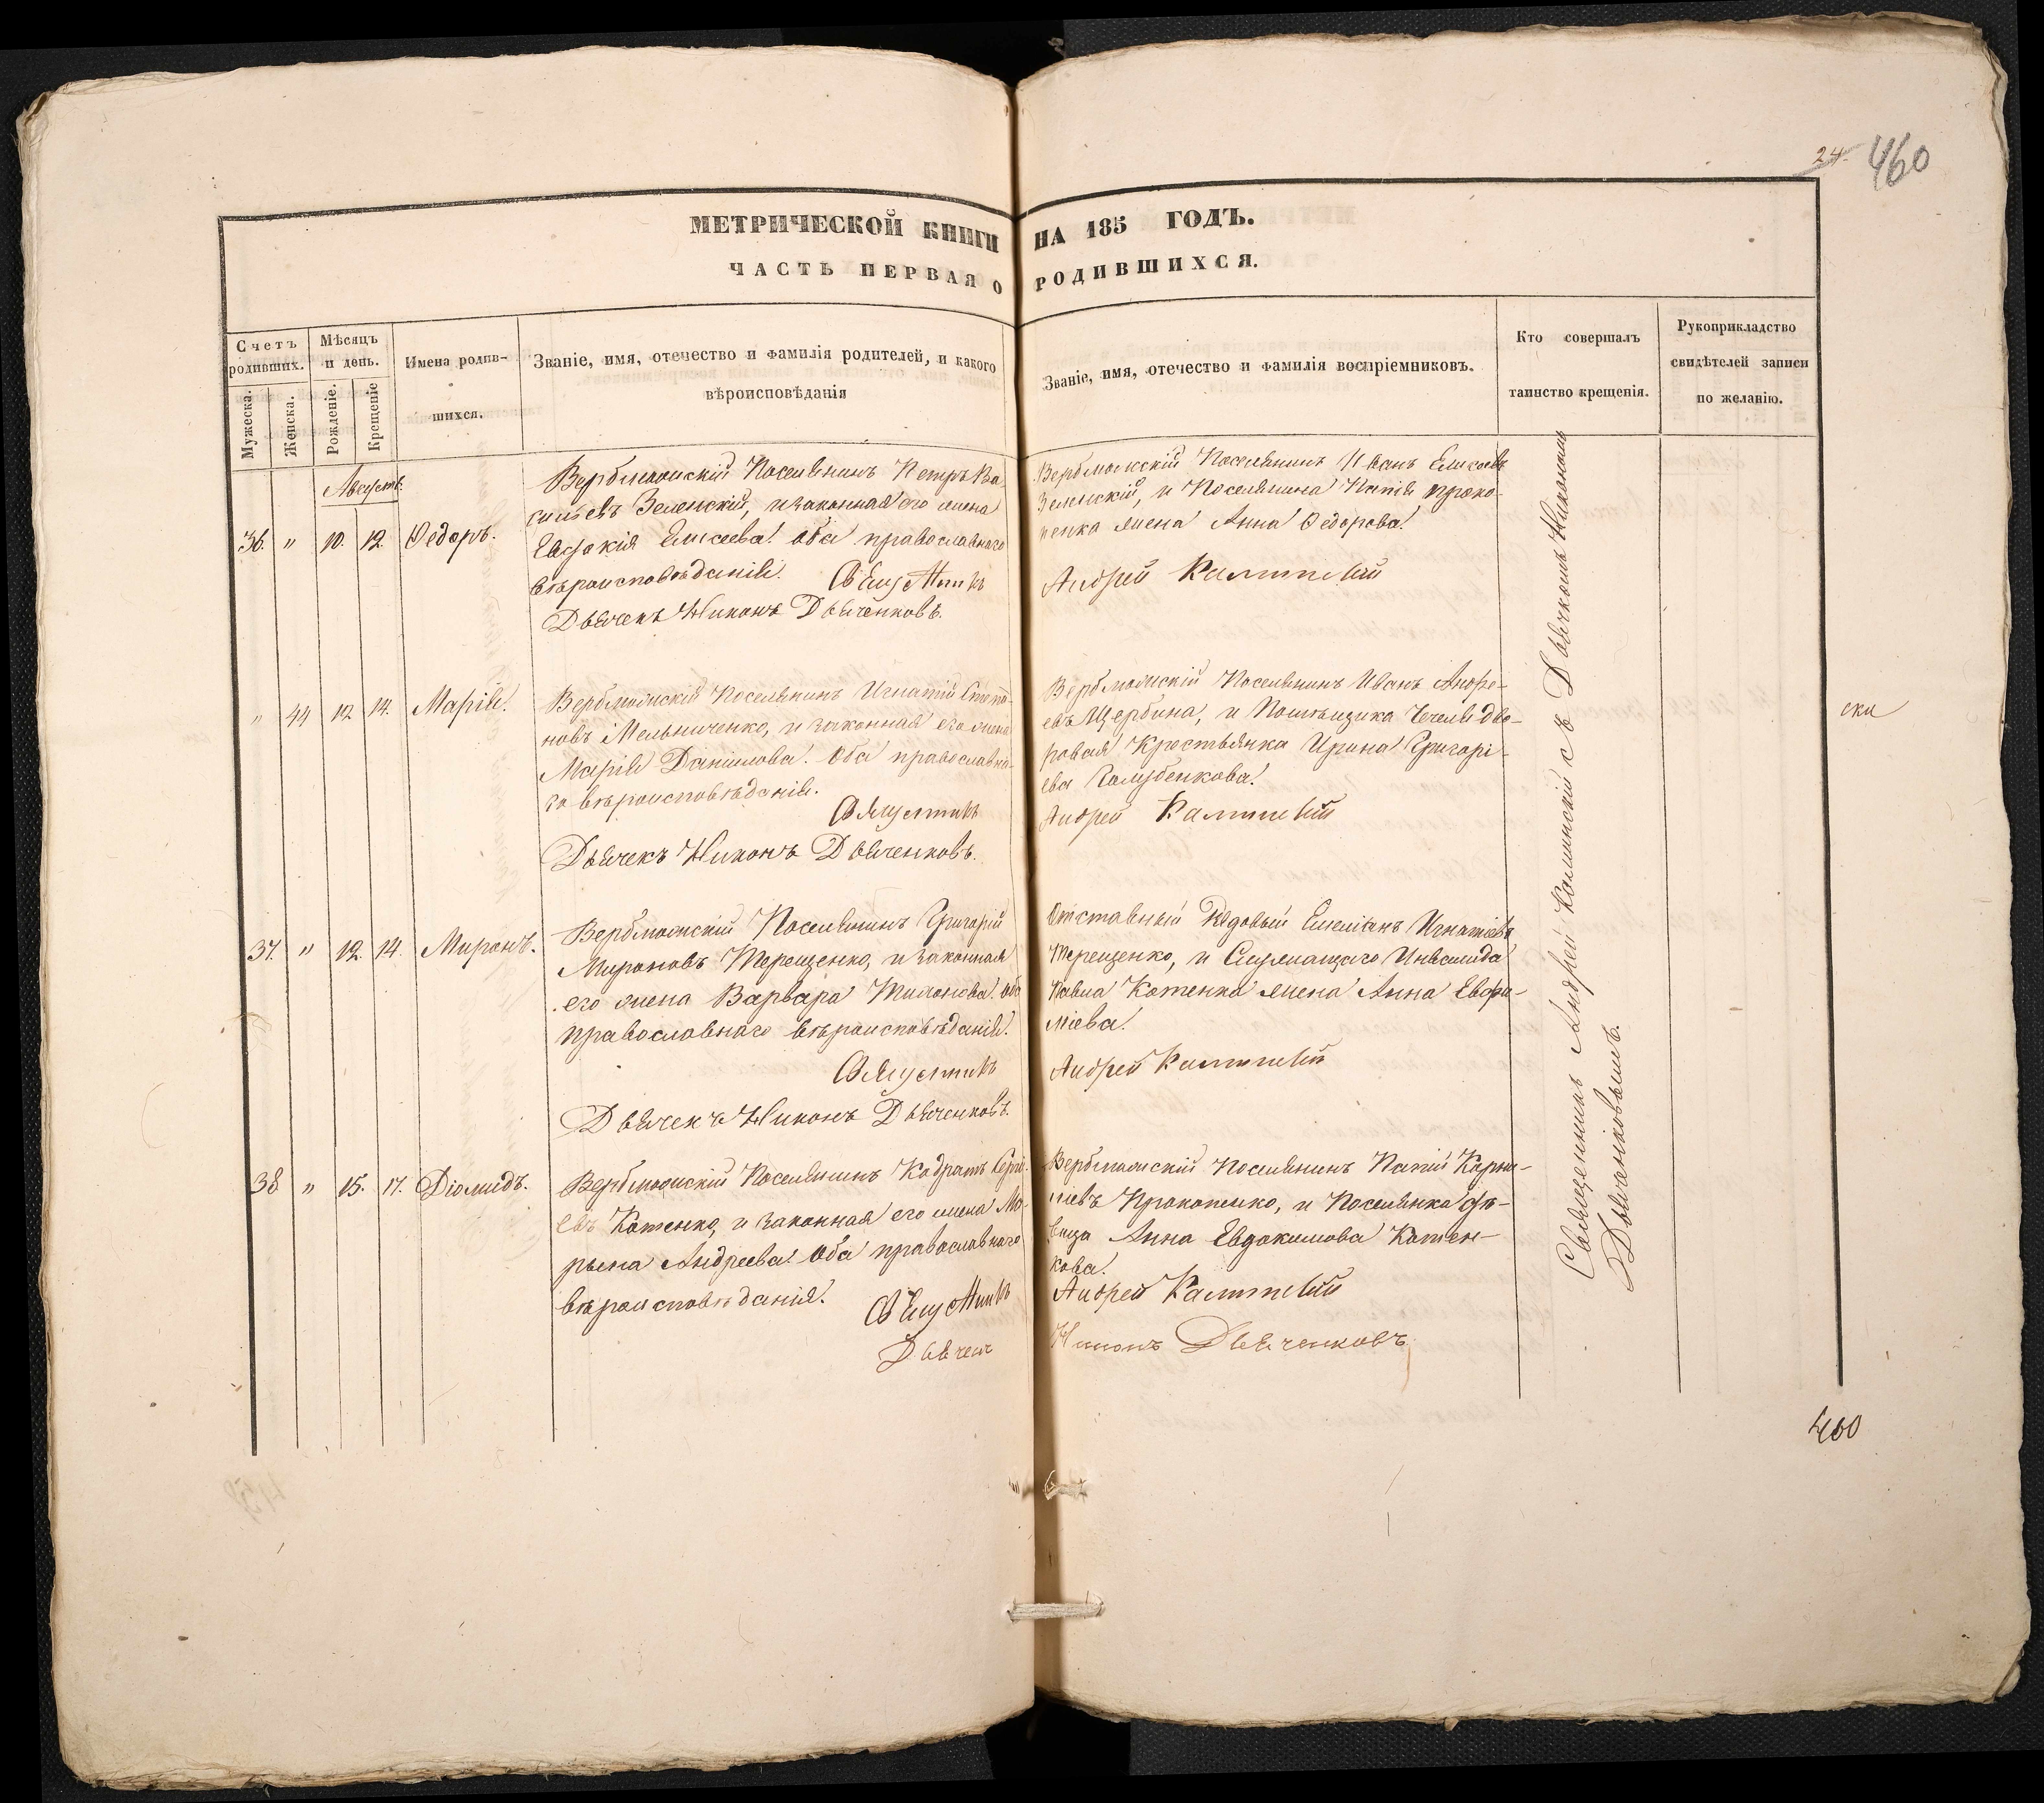 24. 460
МЕТРИЧЕСКОЙ КНИГИ НА 185 ГОДЪ.
ЧАСТЬ ПЕРВАЯ О РОДИВШИХСЯ.
Счетъ родивших.
Мужеска.
Женска.
Мѣсяцъ и день.
Рожденіе.
Крещеніе
Имена родив-
шихся.
Званіе, имя, отечество и фамилія родителей, и какого
вѣроисповѣданія
Званіе, имя, отечество и фамилія воспріемниковъ.
Кто совершалъ
таинство крещенія.
Рукоприкладство
свидѣтелей записи
по желанію.
Августъ.
36. " 10. 12. Ѳедоръ.
Поселянинъ Петръ Ва
сильевъ Зеленскій, и законная его жена
Евдокія Елисеева. Оба православнаго
вѣроисповѣданія. Священникъ
Дьячекъ Никонъ Дьяченковъ.
Поселянинъ Иванъ Елисеевъ
Зеленскій, и Поселянина Патія Проко-
пенка жена Анна Ѳедорова.
Андрей Калинскій
" 44 12 14. Марія.
Поселянинъ Игнатій Степа-
новъ Мельниченко, и законная его жена
Марія Даніилова. Оба православна-
го вѣроисповѣданія.
Священникъ
Дьячекъ Никонъ Дьяченковъ.
Поселянинъ Иванъ Андре-
евъ Щербина, и Помѣщика дво-
ровая Крестьянка Ирина Григорі-
ева Голубенкова.
Андрей Калинскій
37. " 12. 14. Миронъ.
Поселянинъ Григорій
Мироновъ Терещенко, и законная
его жена Варвара Тимонова. Оба
православнаго вѣроисповѣданія.
Священникъ
Дьячекъ Никонъ Дьяченковъ.
Отставный Рядовый Емеліанъ Игнатіевъ
Терещенко, и Служащаго Инвалида
Павла Котенка жена Анна Евфи-
міева.
Андрей Калинскій
38 " 15. 17. Діомидъ.
Поселянинъ Кодратъ Сергі-
евъ Котенко, и законная его жена Ма-
рьяна Андреева. Оба православнаго
вѣроисповѣданія. Священникъ
Дьячекъ
Поселянинъ Патій Корни-
ліевъ Прокопенко, и Поселянка дѣ-
вица Анна Евдокимова Котен-
кова.
Андрей Калинскій
Никонъ Дьяченковъ
Священникъ Андрей Калинскій съ Дьячкомъ Никономъ
Дьяченковымъ.
ски
460